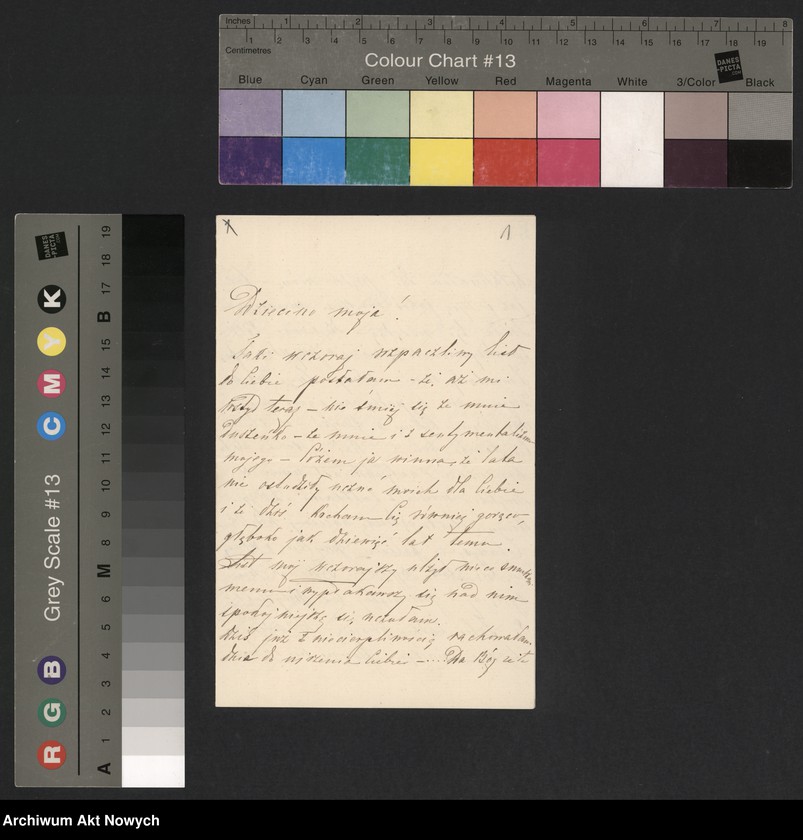 Inches 1 2 3 4 5 6 7 8
Centimetres 1 2 3 4 5 6 7 8 9 10 11 12 13 14 15 16 17 18 19
Colour Chart #13
DANES-PICTA.COM
Blue Cyan Green Yellow Red Magenta White 3/Color Black
Grey Scale #13
DANES-PICTA.COM
R G B C M Y K
A 1 2 3 4 5 6 M 8 9 10 11 12 13 14 15 B 17 18 19
x 1
Dziecino moja!
Taki wczoraj rozpaczliwy list
do Ciebie posłałam – że, aż mi
wstyd teraz – nie śmiej się ze mnie
Duszeńko – ze mnie i z sentymentalizmu
mojego – ja winna, że lata
nie ostudziły uczuć moich dla Ciebie
i że dziś kocham Cię również gorąco,
głęboko jak dziewięć lat temu.
List mój wczorajszy ulżył mi
memu i wypłakawszy się nad nim
spokojniejszą się uczułam.
Dziś już z niecierpliwością rachowałam
dnie do ujrzenia Ciebie – .... Da Bóg że te
Archiwum Akt Nowych